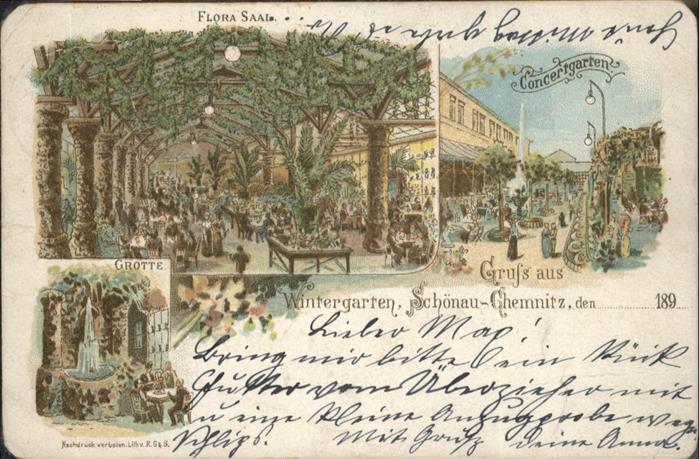 FLORA SAAL.
Concertgarten.
GROTTE
Gruſs aus
Wintergarten, Schönau-Chemnitz, den 189
Lieber Max!
Bring mir bitte ein Stück
Futter vom Überzieher mit
u eine kleine Anzugprobe weg.
Schlips. Mit Gruß deine Anna.
Nachdruck verboten. Lith. v. R. G & S.